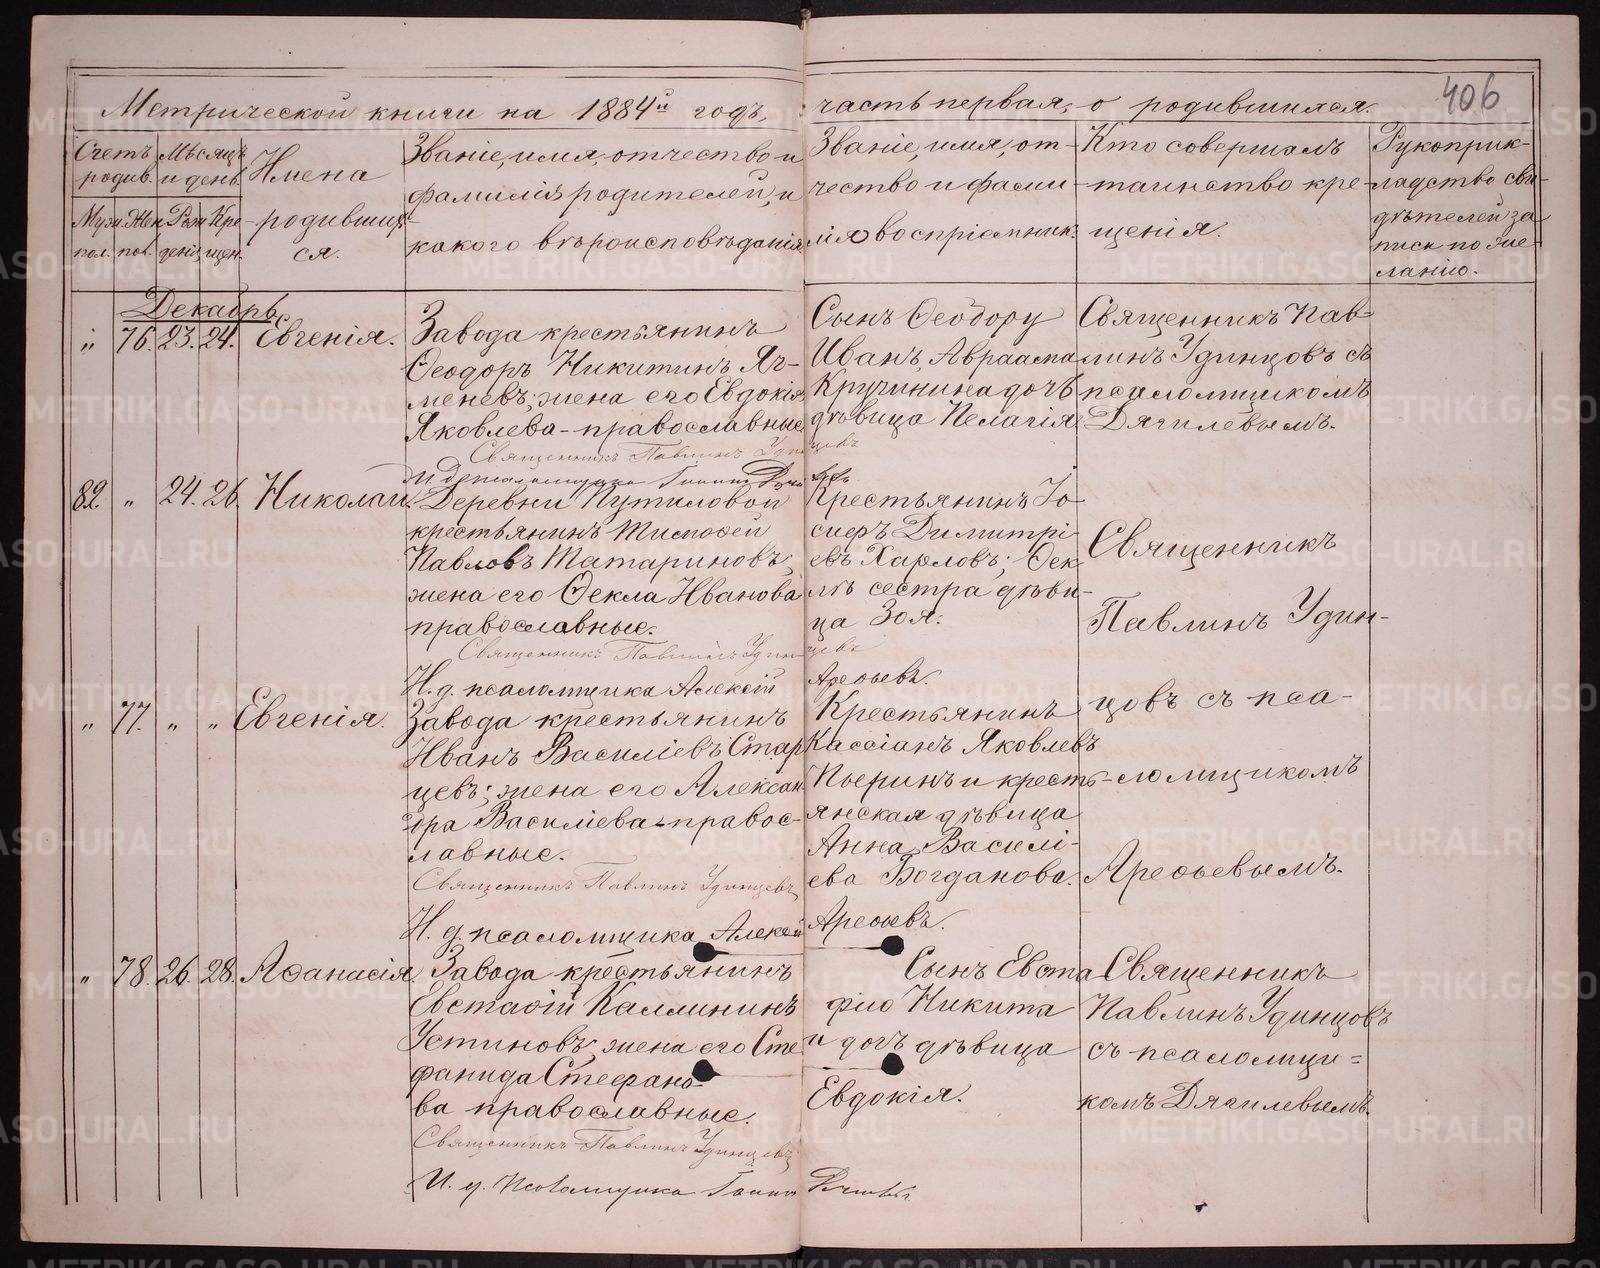 406
Метрической книги на 1884й годъ, часть первая, о родившихся.
Счетъ родив.
Муж. пол.
Жен. пол.
Мѣсяцъ и день
Рожденія
Крещен.
Имена
родившихся.
Званіе, имя, отчество и
фамилія родителей, и
какого вѣроисповѣданія.
Званіе, имя, от-
чество и фами-
лія воспріемник.
Кто совершалъ
таинство кре-
щенія.
Рукоприк-
ладство сви-
дѣтелей за
писи по же-
ланію.
Декабрь
„ 76. 23. 24. Евгенія.
Завода крестьянинъ
Ѳеодоръ Никитинъ Яч-
меневъ; жена его Евдокія
Яковлева - православные
Священникъ Павлинъ Удинцевъ
Сынъ Ѳеодору
Иванъ, Авраама
Кручинина дочь
дѣвица Пелагія
Священникъ Пав-
линъ Удинцовъ съ
псаломщикомъ
Дягилевымъ.
И. д. псаломщика
82. „ 24. 26. Николай.
Деревни Путиловой
крестьянинъ Тимофей
Павловъ Татариновъ;
жена его Ѳекла Иванова
православные.
Священникъ Павлинъ Удинцевъ
Н. д. псаломщика Алексій Арефьевъ.
Крестьянинъ Іо-
сифъ Димитрі-
евъ Харловъ; Ѳек-
лѣ сестра дѣви-
ца Зоя.
Священникъ
Павлинъ Удин-
цовъ съ пса-
ломщикомъ
Арефьевымъ.
„ 77. „ „ Евгенія.
Завода крестьянинъ
Иванъ Василіевъ Стар
цевъ; жена его Алексан
дра Василіева - правос-
лавные.
Священникъ Павлинъ Удинцевъ
Н. д. псаломщика Алексій Арефьевъ.
Крестьянинъ
Кассіанъ Яковлевъ
и кресть-
янская дѣвица
Анна Василі-
ева Богданова.
„ 78. 26. 28. Афанасія.
Завода крестьянинъ
Евстафій Каллининъ
Устиновъ; жена его Сте
фанида Стефано-
ва православные.
Священникъ Павлинъ Удинцевъ
И. д. Псаломщика
Сынъ Евста
фію Никита
и дочь дѣвица
Евдокія.
Священникъ
Павлинъ Удинцовъ
съ псаломщи=
комъ Дягилевымъ.
METRIKI.GASO-URAL.RU